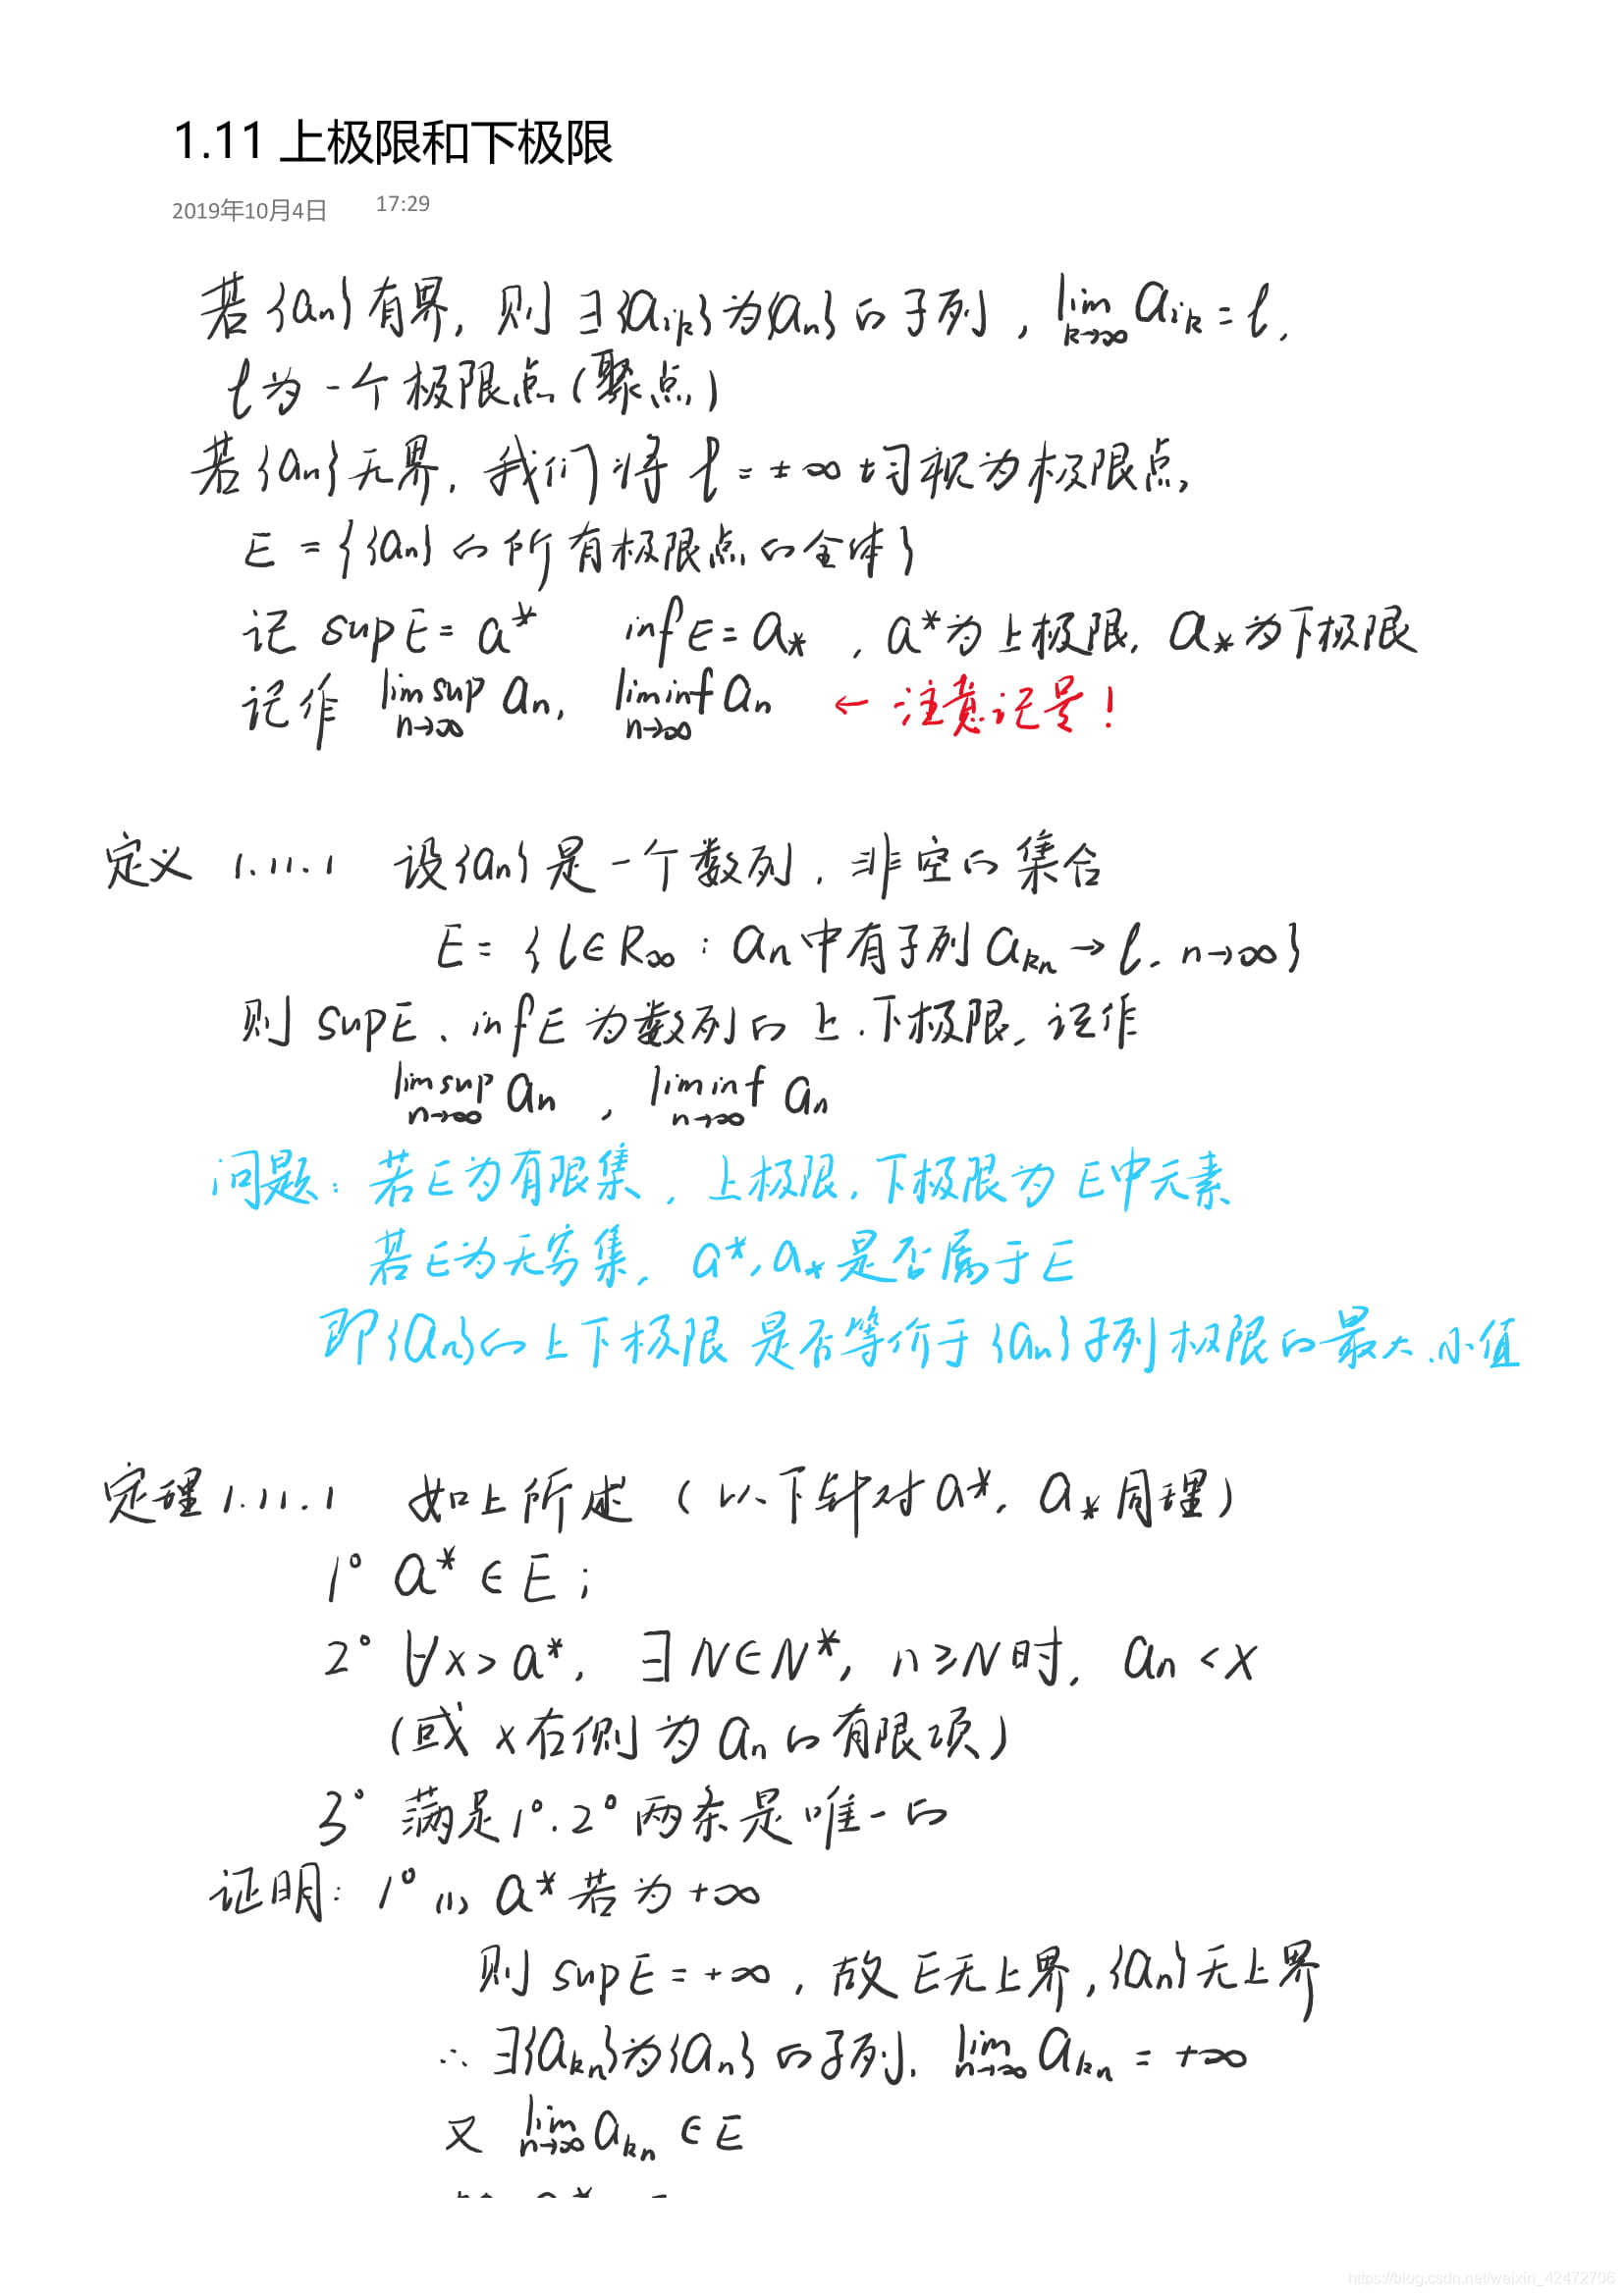 1.11 上极限和下极限
2019年10月4日 17:29
若{aₙ}有界, 则∃{a_{i_k}}为{aₙ}的子列, lim_{k→∞} a_{i_k} = l,
l为一个极限点(聚点)
若{aₙ}无界, 我们将 l = ±∞ 均视为极限点,
E = {{aₙ}的所有极限点的全体}
记 supE = a* infE = a_*, a*为上极限, a_*为下极限
记作 lim sup_{n→∞} aₙ, lim inf_{n→∞} aₙ ← 注意记号!
定义 1.11.1 设{aₙ}是一个数列, 非空的集合
E = {l∈R_∞ : aₙ中有子列a_{k_n}→l, n→∞}
则 supE、infE为数列的上、下极限, 记作
lim sup_{n→∞} aₙ, lim inf_{n→∞} aₙ
问题: 若E为有限集, 上极限, 下极限为E中元素
若E为无穷集, a*, a_*是否属于E
即{aₙ}的上下极限是否等价于{aₙ}子列极限的最大、小值
定理1.11.1 如上所述 (以下针对a*, a_*同理)
1° a* ∈ E;
2° ∀x > a*, ∃N∈N*, n≥N时, aₙ < x
(或 x右侧为aₙ的有限项)
3° 满足1°、2°两条是唯一的
证明: 1° (1) a*若为+∞
则 supE = +∞, 故E无上界, {aₙ}无上界
∴ ∃{a_{k_n}}为{aₙ}的子列, lim_{n→∞} a_{k_n} = +∞
又 lim_{n→∞} a_{k_n} ∈ E
https://blog.csdn.net/weixin_42472706